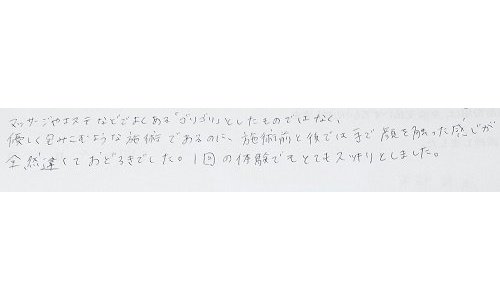 マッサージやエステなどでよくある「ゴリゴリ」としたものではなく、
優しく包みこむような施術であるのに、施術前と後では手で顔を触った感じが
全然違くておどろきでした。1回の体験でもとてもスッキリとしました。